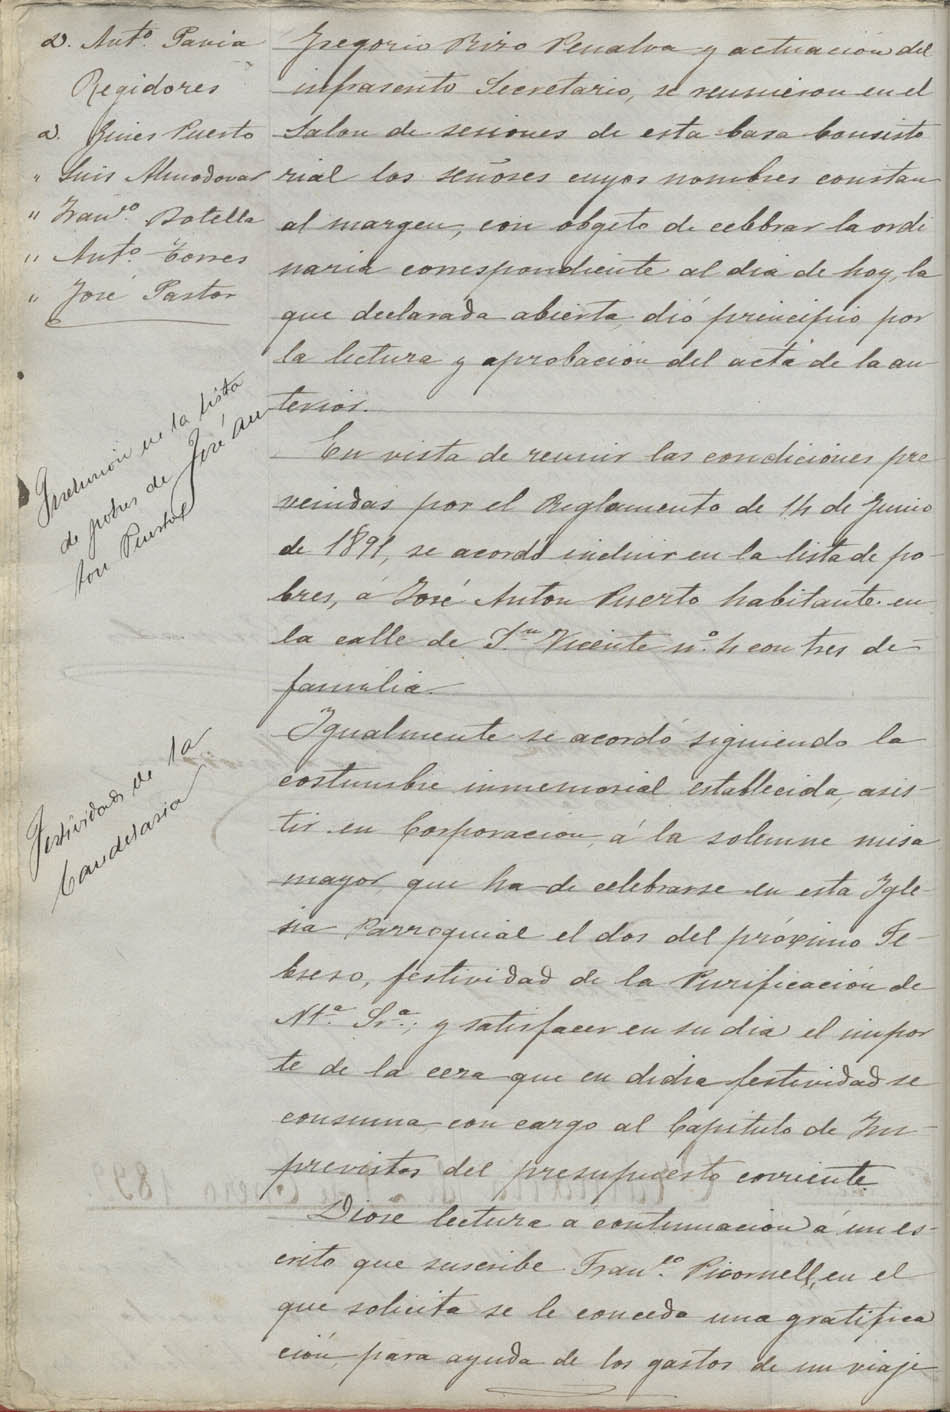 D. Antº. Pavia
Regidores
D. Gines Puerto
" Luis Almodovar
" Franco. Botella
" Antº. Torres
" José Pastor
Gregorio Rizo Penalva y actuación del
infrascrito Secretario, se reunieron en el
Salon de sesiones de esta Casa Consisto
rial los señores cuyos nombres constan
al margen, con objeto de celebrar la ordi
naria correspondiente al dia de hoy, la
que declarada abierta, dió principio por
la lectura y aprobación del acta de la an
terior.
Inclusión en la lista
de pobres de José An
ton Puerto
En vista de reunir las condiciones pre
venidas por el Reglamento de 14 de Junio
de 1891, se acordó incluir en la lista de po-
bres, á José Anton Puerto habitante en
la calle de Sn. Vicente nº. 4 con tres de
familia.
Festividad de la
Candelaria
Igualmente se acordó siguiendo la
costumbre inmemorial establecida, asis-
tir en Corporacion, á la solemne misa
mayor que ha de celebrarse en esta Igle-
sia Parroquial el dos del próximo Fe-
brero, festividad de la Purificación de
Ntª. Srª.; y satisfacer en su dia el impor
te de la cera que en dicha festividad se
consuma, con cargo al Capitulo de Im-
previstos del presupuesto corriente
Diose lectura a continuacion á un es-
crito que suscribe Franco. Picornell, en el
que solicita se le conceda una gratifica
ción, para ayuda de los gastos de un viaje